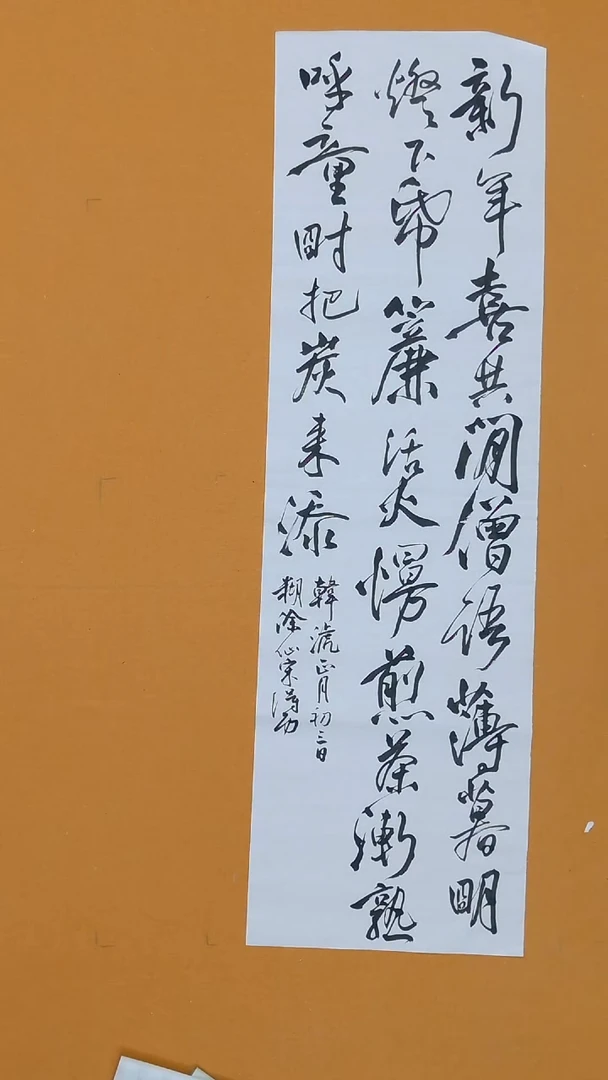 新年喜共閒僧語薄暮朙
燈下帋簾活火慢煎茶漸熟
呼童时把炭来添
韓淲正月初三日
糊涂仙宋